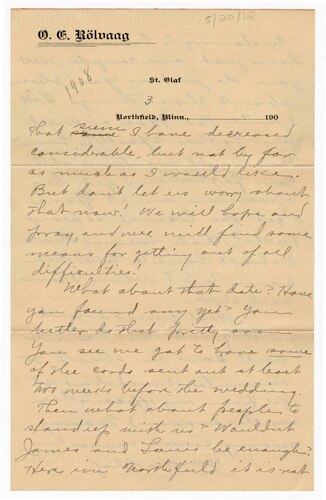 5/20/08
O. E. Rölvaag
1908
St. Olaf
3
Northfield, Minn., 190
that sum I have decreased
considerable, but not by far
as much as I would like.
But don't let us worry about
that now! We will hope and
pray, and we will find some
means for getting out of all
difficulties!
What about that date? Have
you found any yet? You
better do that pretty soon.
You see we got to have some
of the cards sent out at least
two weeks before the wedding.
Then what about people to
stand up with us? Wouldn't
James and Louis be enough?
Here in Northfield it is not